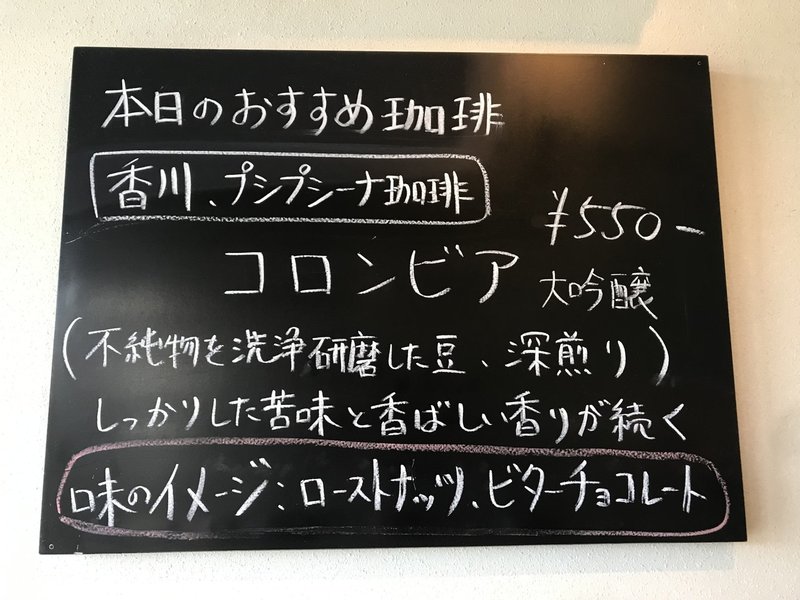 本日のおすすめ珈琲
香川、プシプシーナ珈琲
¥550-
コロンビア 大吟醸
(不純物を洗浄研磨した豆、深煎り)
しっかりした苦味と香ばしい香りが続く
味のイメージ:ローストナッツ、ビターチョコレート